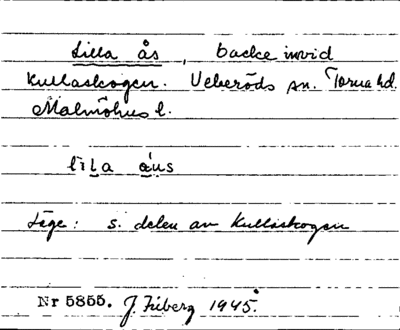 Lilla ås, backe invid
Kullaskogen. Veberöds sn. Torna hd.
Malmöhus l.
lila áus
Läge: s. delen av Kullaskogen
Nr 5855. J. Friberg 1945.